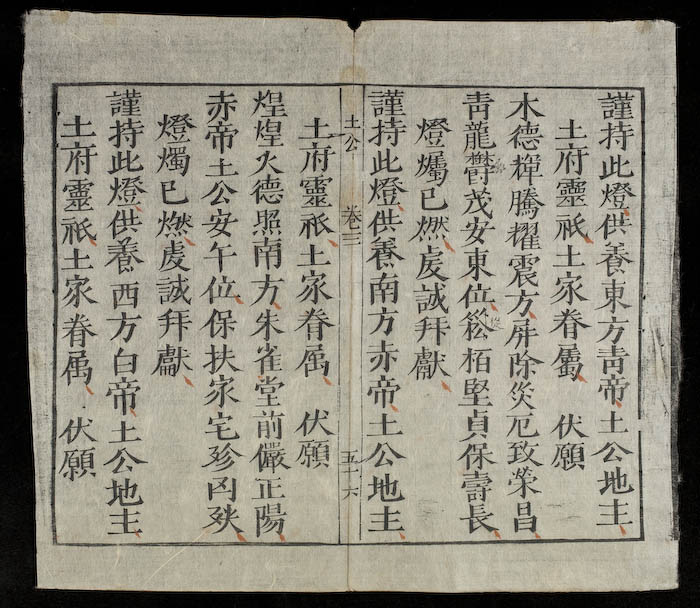 謹持此燈供養東方青帝土公地主
土府靈祇土家眷屬　伏願
木德輝騰耀震方屏除災厄致荣昌
青龍欝茂安東位松栢堅貞保壽長
燈爥已燃虔誠拜獻
謹持此燈供養南方赤帝土公地主
土公　卷三　五十六
土府靈祇土家眷属　伏願
煌煌火德照南方朱雀堂前儼正陽
赤帝土公安午位保扶家宅殄凶殃
燈燭已燃虔誠拜獻
謹持此燈供養西方白帝土公地主
土府靈祇土家眷属　伏願